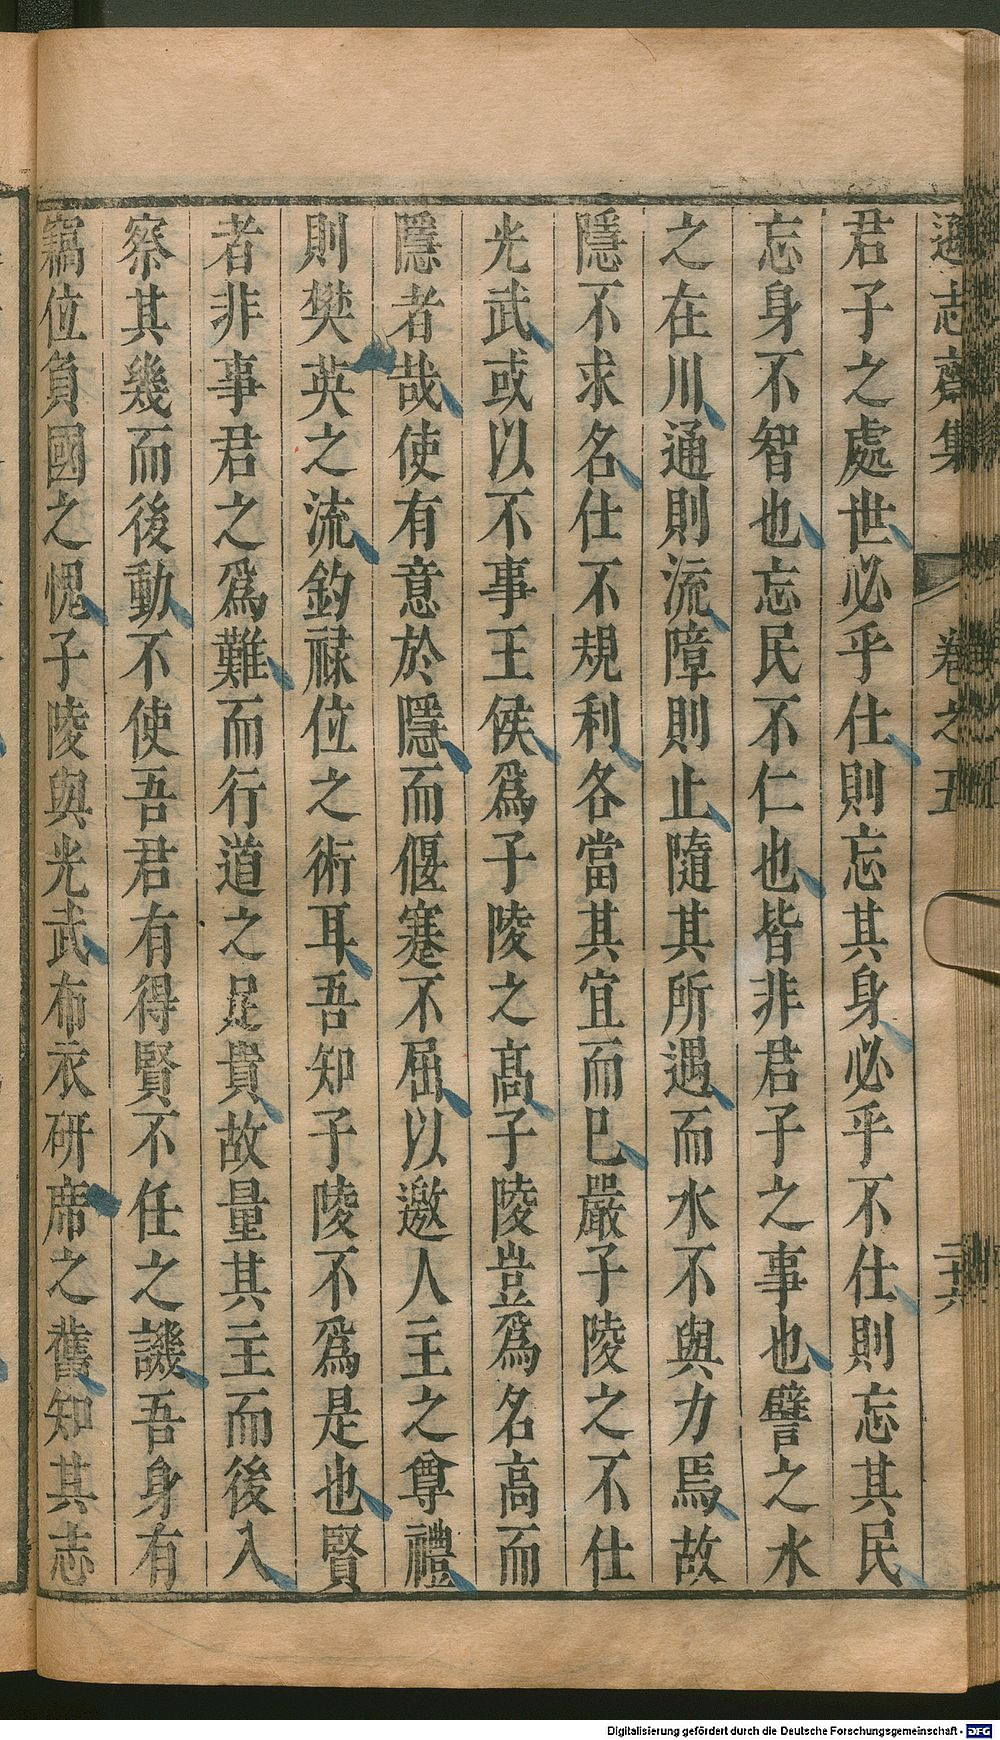 遜志齋集 卷之五 二十六
君子之處世必乎仕則忘其身必乎不仕則忘其民
忘身不智也忘民不仁也皆非君子之事也譬之水
之在川通則流障則止隨其所遇而水不與力焉故
隱不求名仕不規利各當其宜而已嚴子陵之不仕
光武或以不事王侯爲子陵之高子陵豈爲名高而
隱者哉使有意於隱而偃蹇不屈以邀人主之尊禮
則樊英之流釣祿位之術耳吾知子陵不爲是也賢
者非事君之爲難而行道之足貴故量其主而後入
察其幾而後動不使吾君有得賢不任之譏吾身有
竊位負國之愧子陵與光武布衣研席之舊知其志
Digitalisierung gefördert durch die Deutsche Forschungsgemeinschaft - DFG